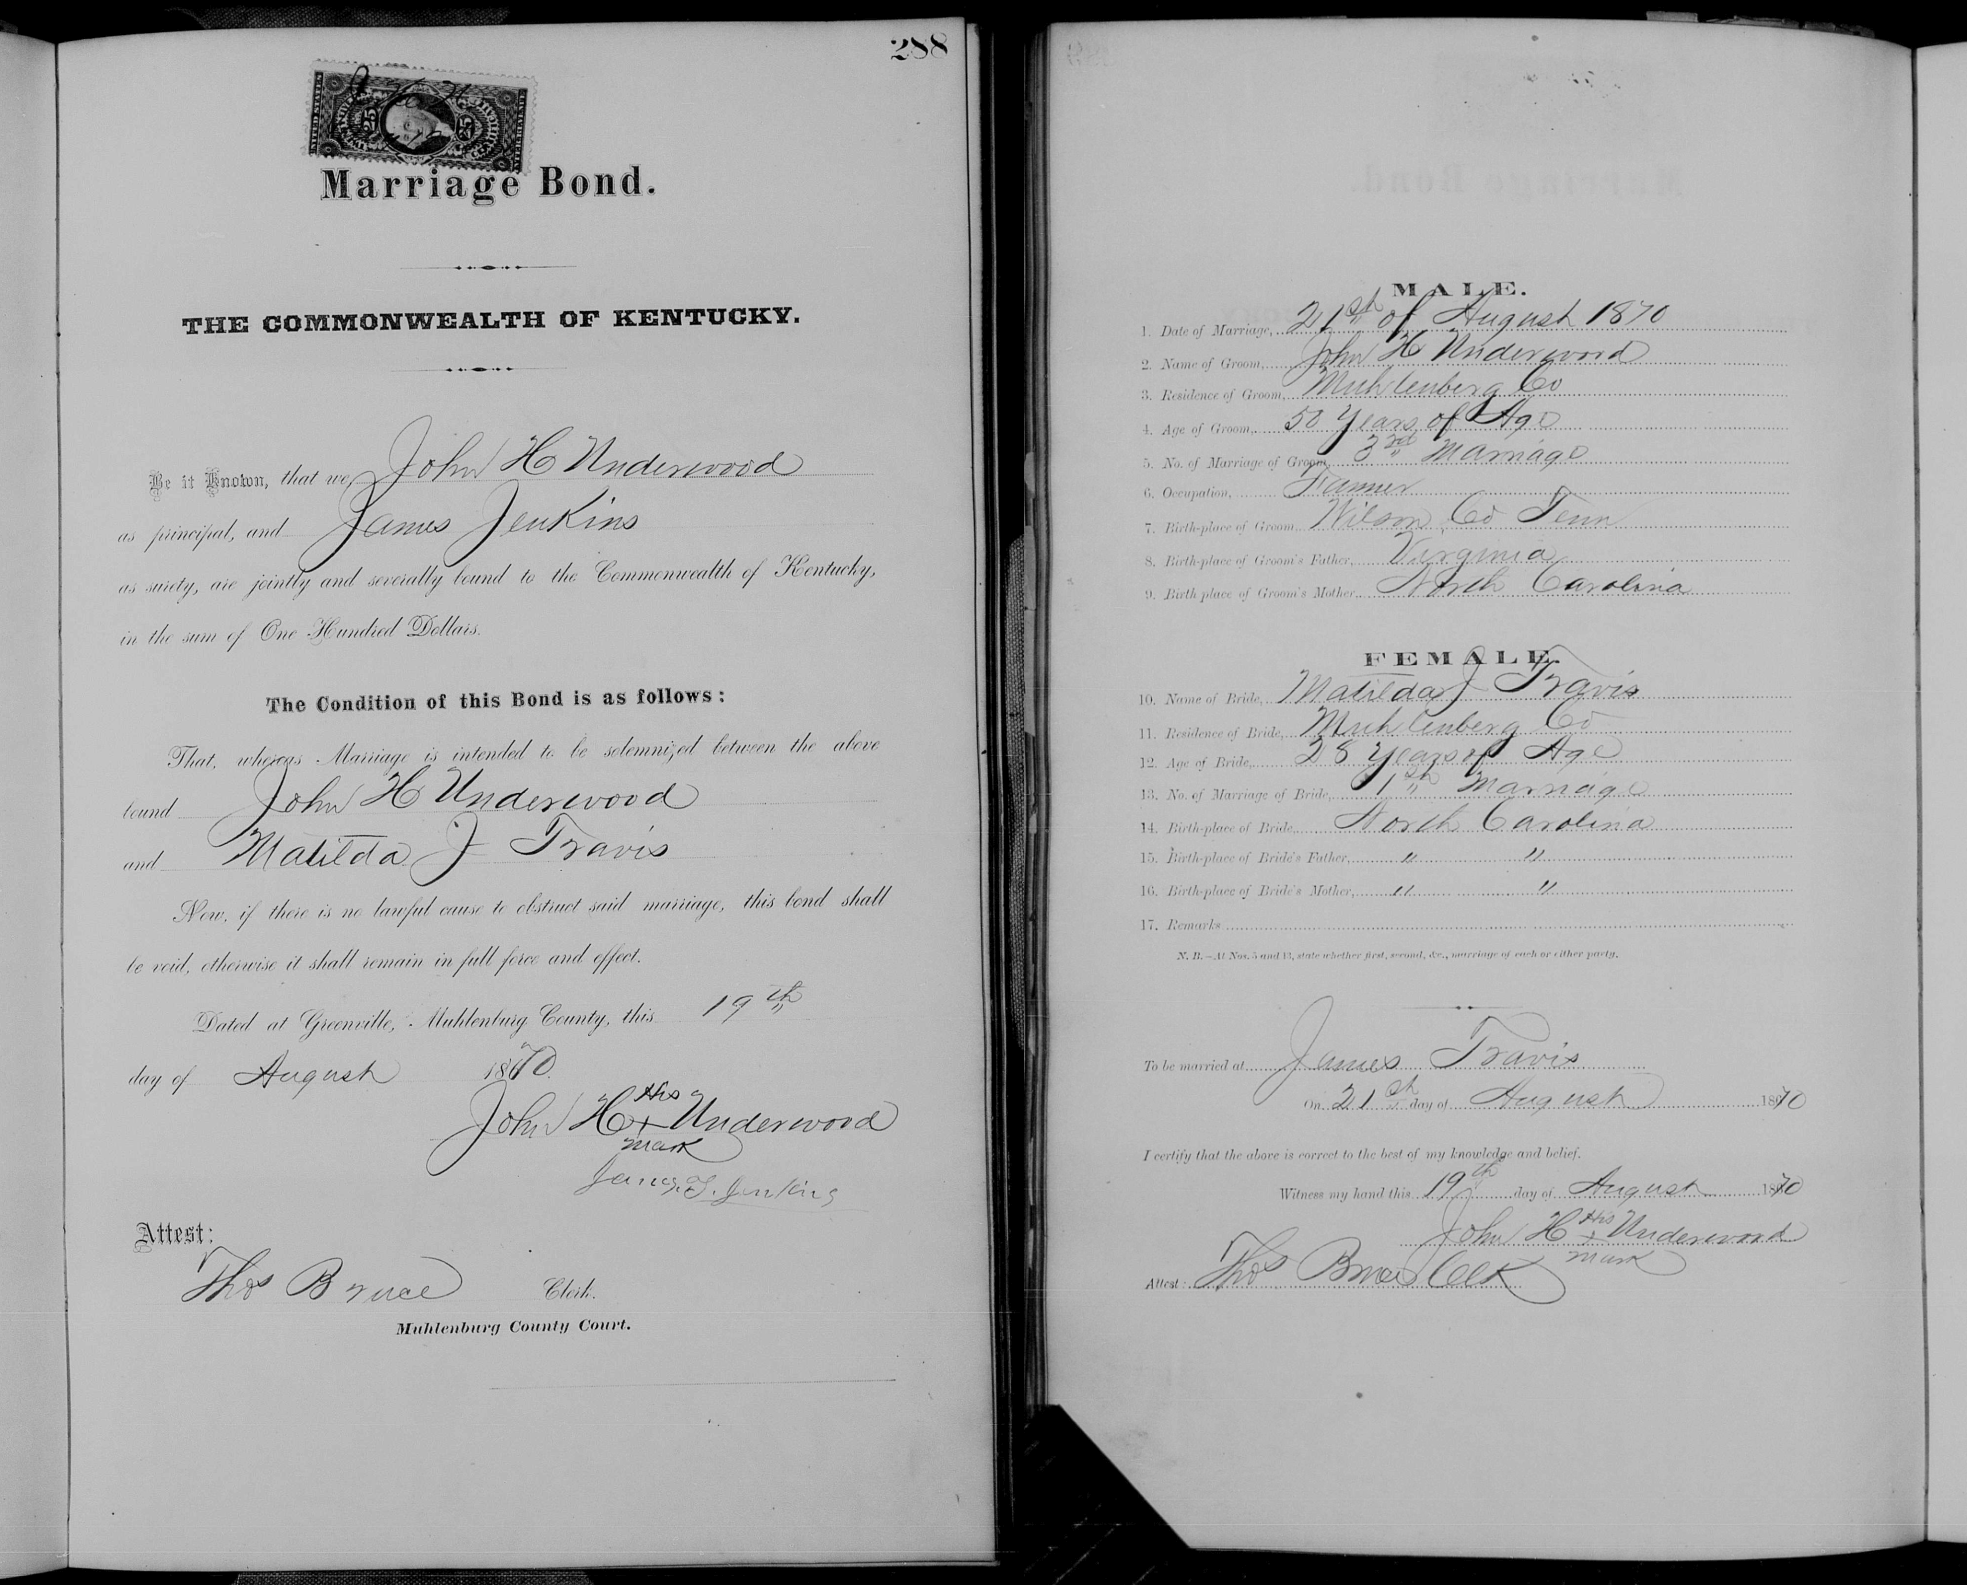 288
UNITED STATES
INTER. REVENUE
25
25
Marriage Bond.
THE COMMONWEALTH OF KENTUCKY.
Be it Known, that we, John H Underwood
as principal, and James Jenkins
as surety, are jointly and severally bound to the Commonwealth of Kentucky,
in the sum of One Hundred Dollars.
The Condition of this Bond is as follows:
That, whereas Marriage is intended to be solemnized between the above
bound John H Underwood
and Matilda J Travis
Now, if there is no lawful cause to obstruct said marriage, this bond shall
be void, otherwise it shall remain in full force and effect.
Dated at Greenville, Muhlenburg County, this 19th
day of August 1870.
John H his + mark Underwood
James T. Jenkins
Attest:
Thos Bruce Clerk.
Muhlenburg County Court.
MALE.
1. Date of Marriage, 21st of August 1870
2. Name of Groom, John H Underwood
3. Residence of Groom, Muhlenberg Co
4. Age of Groom, 50 Years of Age
5. No. of Marriage of Groom, 3rd Marriage
6. Occupation, Farmer
7. Birth-place of Groom, Wilson Co Tenn
8. Birth-place of Groom's Father, Virginia
9. Birth place of Groom's Mother, North Carolina
FEMALE.
10. Name of Bride, Matilda J Travis
11. Residence of Bride, Muhlenberg Co
12. Age of Bride, 28 Years of Age
13. No. of Marriage of Bride, 1st Marriage
14. Birth-place of Bride, North Carolina
15. Birth-place of Bride's Father, " "
16. Birth-place of Bride's Mother, " "
17. Remarks
N. B.—At Nos. 5 and 13, state whether first, second, &c., marriage of each or either party.
To be married at James Travis
On 21st day of August 1870
I certify that the above is correct to the best of my knowledge and belief.
Witness my hand this 19th day of August 1870
John H his + mark Underwood
Attest: Thos Bruce Clk